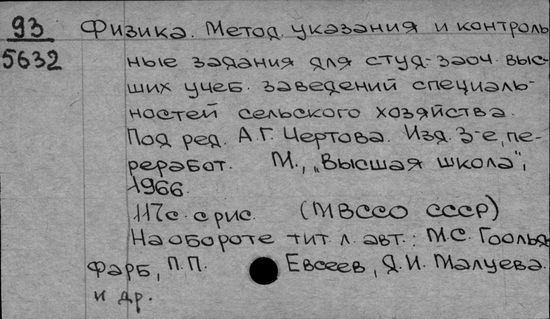 93 Физика. Метод. указания и контроль
5632 ные задания для студ.-заоч. выс-
ших учеб. заведений специаль-
ностей сельского хозяйства.
Под ред. А.Г. Чертова. Изд. 3-е, пе-
реработ. М., „Высшая школа",
1966.
117с. с рис. (МВССО СССР)
На обороте тит. л. авт.: М.С.
Фарб, П.П. Евсеев, Я.И. Малуева.
и др.